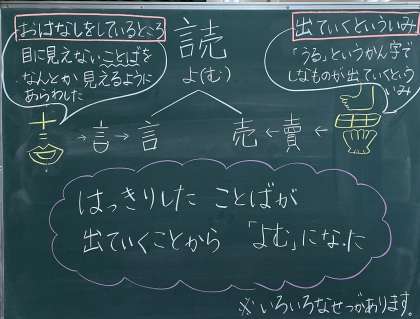 おはなしをしているところ
目に見えないことばを
なんとか見えるように
あらわした
読
よ(む)
出ていくといういみ
「うる」というかん字で
しなものが出ていくという
いみ
→言→言
売←賣←
はっきりした ことばが
出ていくことから 「よむ」になった
※いろいろなせつがあります。